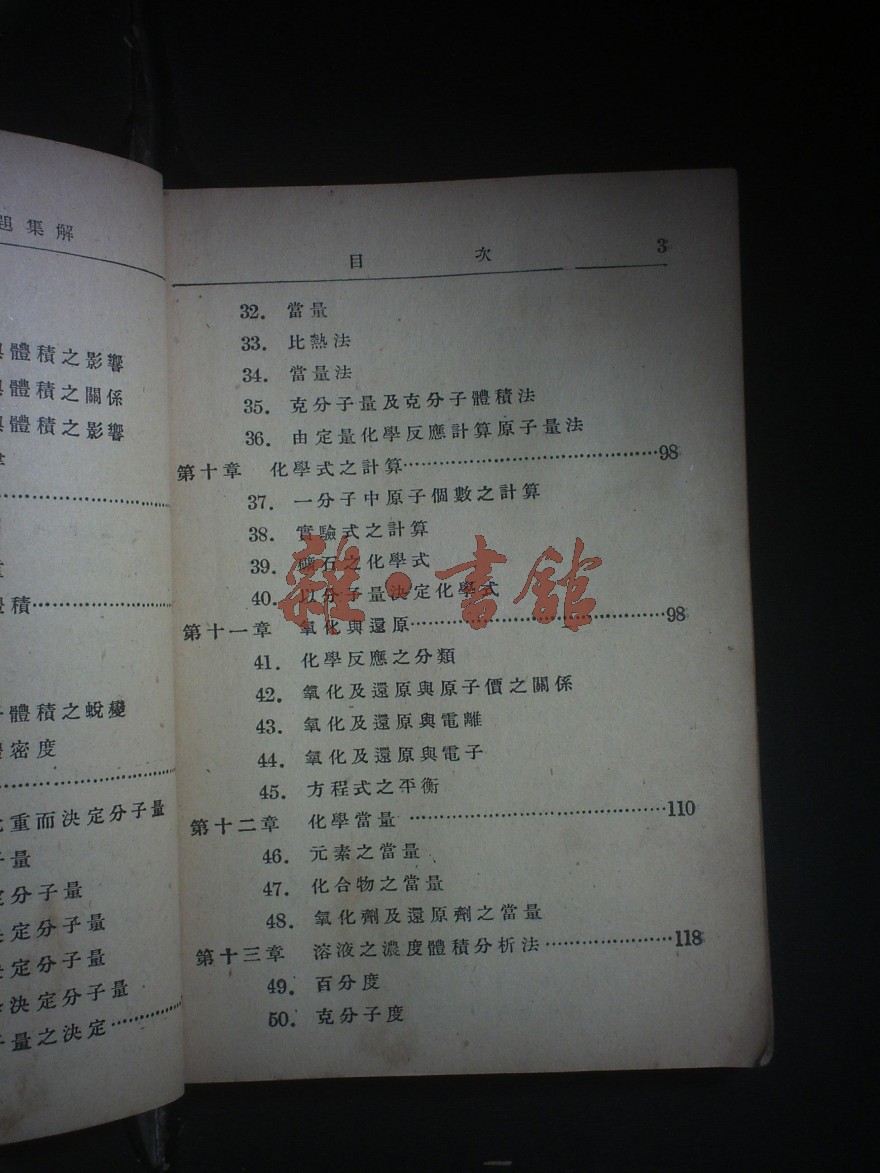 題集解
體積之影響
體積之關係
體積之影響
積
體積之蛻變
密度
重而決定分子量
量
定分子量
決定分子量
決定分子量
決定分子量
量之決定
目 次 3
32. 當量
33. 比熱法
34. 當量法
35. 克分子量及克分子體積法
36. 由定量化學反應計算原子量法
第十章 化學式之計算 98
37. 一分子中原子個數之計算
38. 實驗式之計算
39. 礦石之化學式
40. 以分子量決定化學式
第十一章 氧化與還原 98
41. 化學反應之分類
42. 氧化及還原與原子價之關係
43. 氧化及還原與電離
44. 氧化及還原與電子
45. 方程式之平衡
第十二章 化學當量 110
46. 元素之當量
47. 化合物之當量
48. 氧化劑及還原劑之當量
第十三章 溶液之濃度體積分析法 118
49. 百分度
50. 克分子度
雜·書館